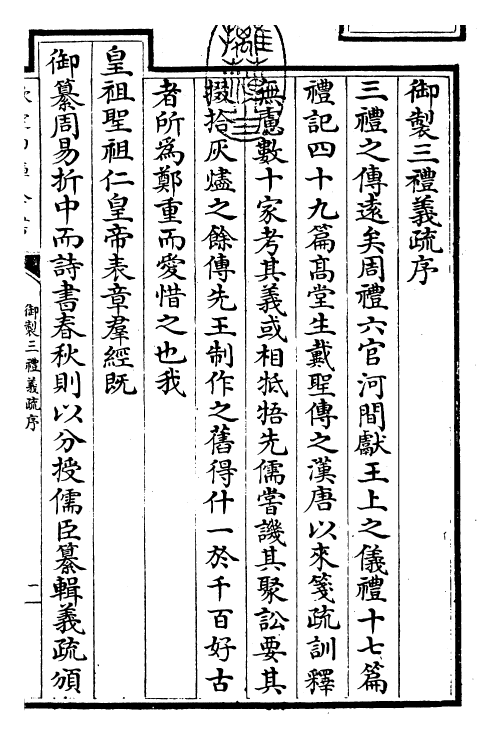 御製三禮義疏序
三禮之傳遠矣周禮六官河間獻王上之儀禮十七篇
禮記四十九篇髙堂生戴聖傳之漢唐以來箋疏訓釋
無慮數十家考其義或相牴牾先儒嘗譏其聚訟要其
掇拾灰燼之餘傳先王制作之舊得什一於千百好古
者所爲鄭重而愛惜之也我
皇祖聖祖仁皇帝表章羣經既
御纂周易折中而詩書春秋則以分授儒臣纂輯義疏頒
御製三禮義疏序
一